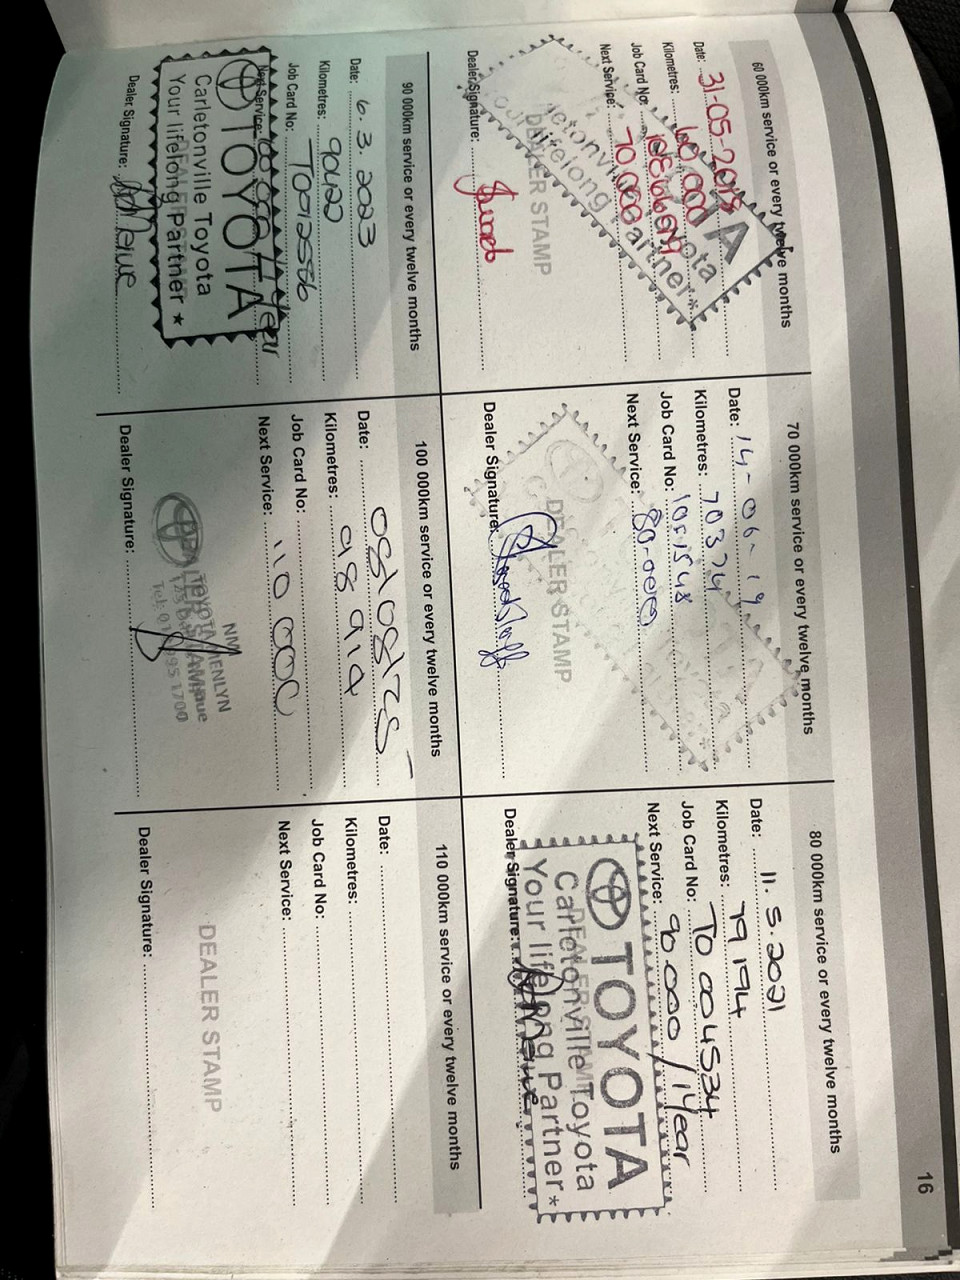 16
60 000km service or every twelve months
Date: 31-05-2018
Kilometres: 60 000
Job Card No:
Next Service: 70 000
DEALER STAMP
Dealer Signature:
70 000km service or every twelve months
Date: 14-06-19
Kilometres: 70374
Job Card No: 1051548
Next Service: 80-000
DEALER STAMP
Dealer Signature:
80 000km service or every twelve months
Date: 11.5.2021
Kilometres: 79194
Job Card No: TO 004534
Next Service: 90.000 / 1 Year
TOYOTA
DEALER STAMP
Carletonville Toyota
Your lifelong Partner★
Dealer Signature:
90 000km service or every twelve months
Date: 6.3.2023
Kilometres: 90422
Job Card No: TO012586
Next Service: Year
TOYOTA
Carletonville Toyota
DEALER STAMP
Your lifelong Partner ★
Dealer Signature:
100 000km service or every twelve months
Date: 08/08/25
Kilometres: 98 914
Job Card No:
Next Service: 110 000
NM
TOYOTA MENLYN
DEALER STAMP
Dealer Signature:
110 000km service or every twelve months
Date:
Kilometres:
Job Card No:
Next Service:
DEALER STAMP
Dealer Signature: